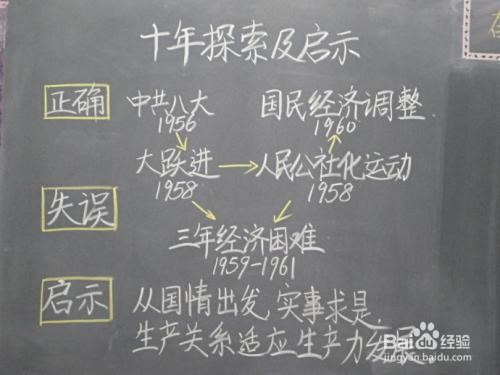 十年探索及启示
正确 中共八大 国民经济调整
1956 1960
大跃进 人民公社化运动
1958 1958
失误
三年经济困难
1959-1961
启示 从国情出发,实事求是.
生产关系适应生产力发展
Baidu经验
jingyan.baidu.com